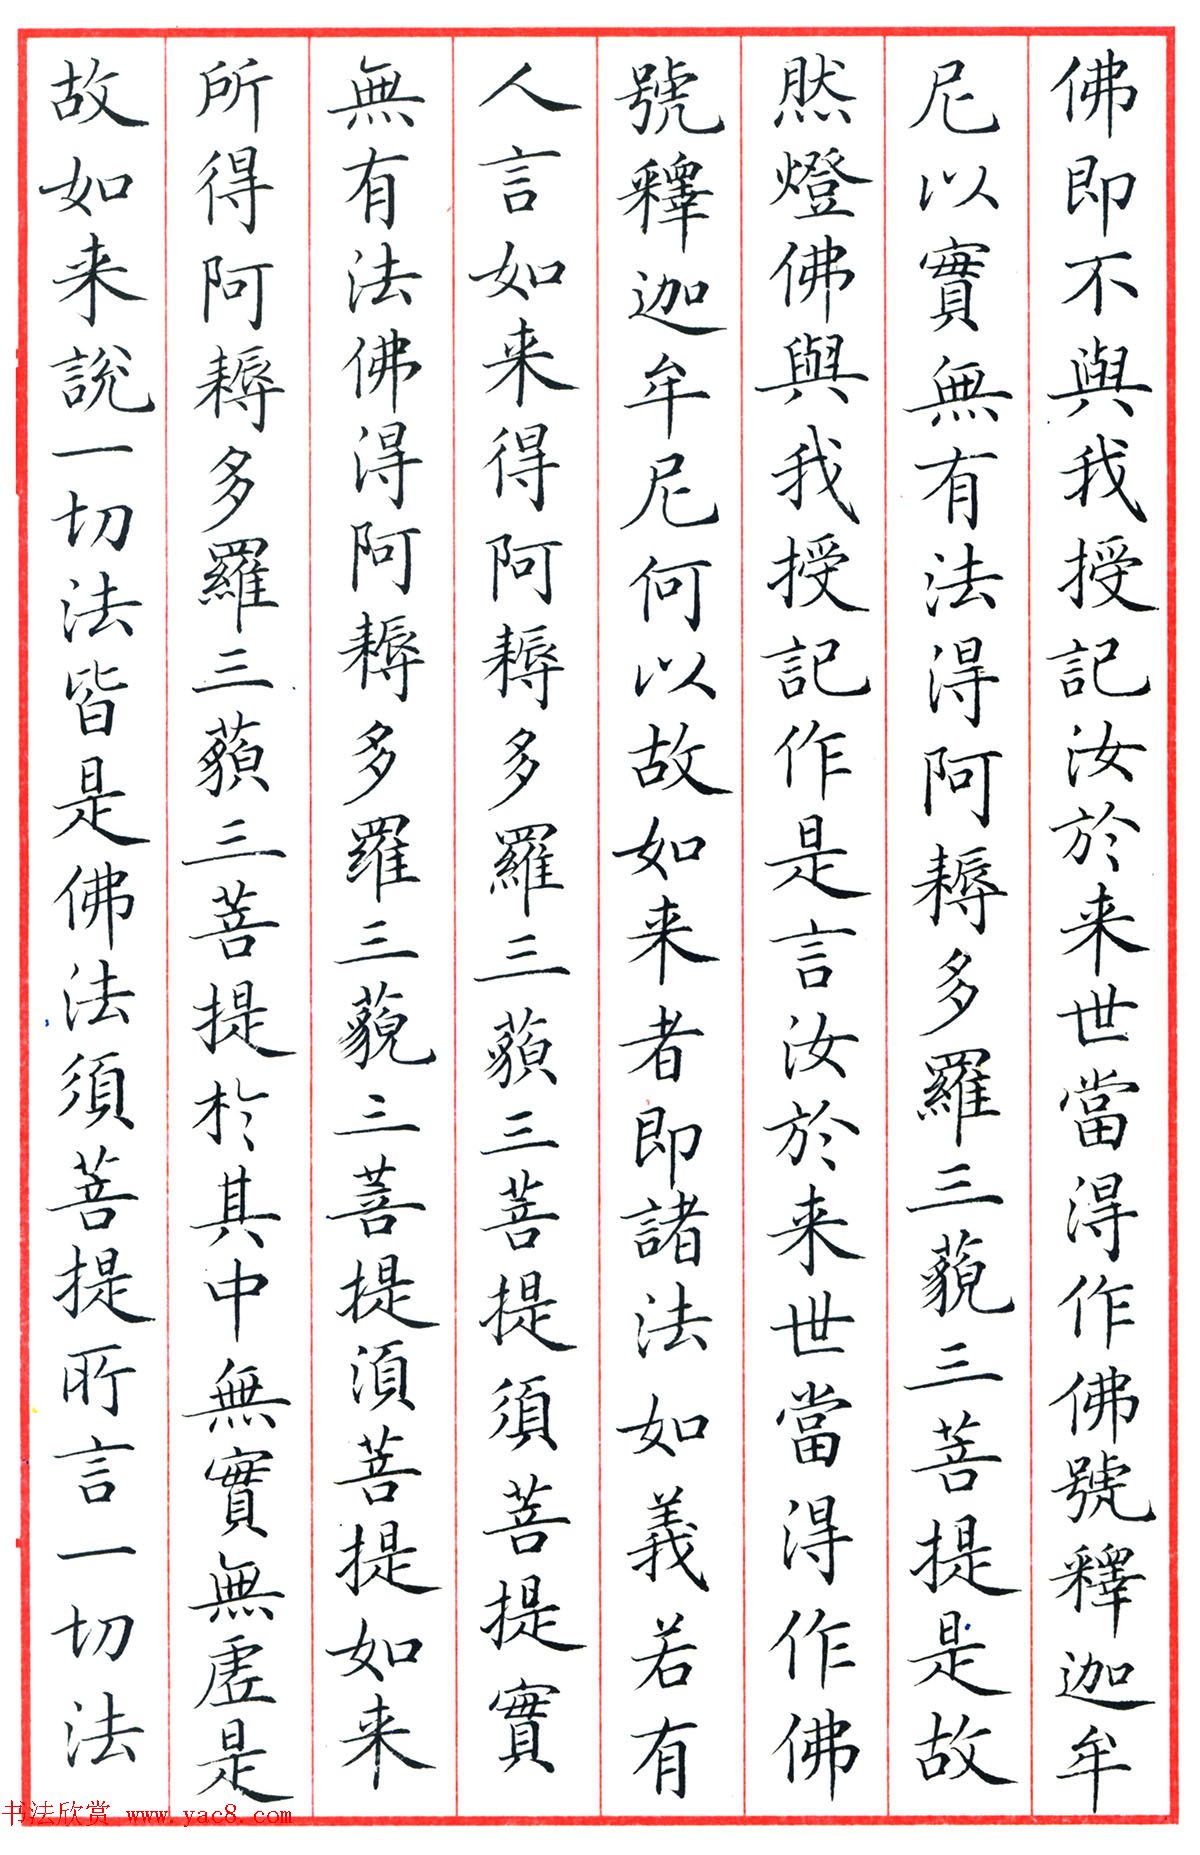 佛即不與我授記汝於来世當得作佛號釋迦牟
尼以實無有法得阿耨多羅三藐三菩提是故
然燈佛與我授記作是言汝於来世當得作佛
號釋迦牟尼何以故如来者即諸法如義若有
人言如来得阿耨多羅三藐三菩提須菩提實
無有法佛得阿耨多羅三藐三菩提須菩提如来
所得阿耨多羅三藐三菩提於其中無實無虛是
故如来說一切法皆是佛法須菩提所言一切法
书法欣赏 www.yac8.com